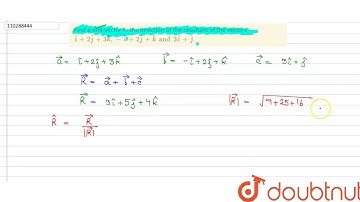 110288444
Find a unit vector in the direction of the resultant of the vectors
î + 2ĵ + 3k̂, − î + 2ĵ + k̂ and 3î + ĵ .
a⃗ = î+2ĵ+3k̂ b⃗ = -î+2ĵ+k̂ a⃗ = 3î+ĵ
R⃗ = a⃗ + b⃗ + c⃗
R⃗ = 3î+5ĵ+4k̂ |R⃗| = √9+25+16
R̂ = R⃗
|R⃗|
doubtnut